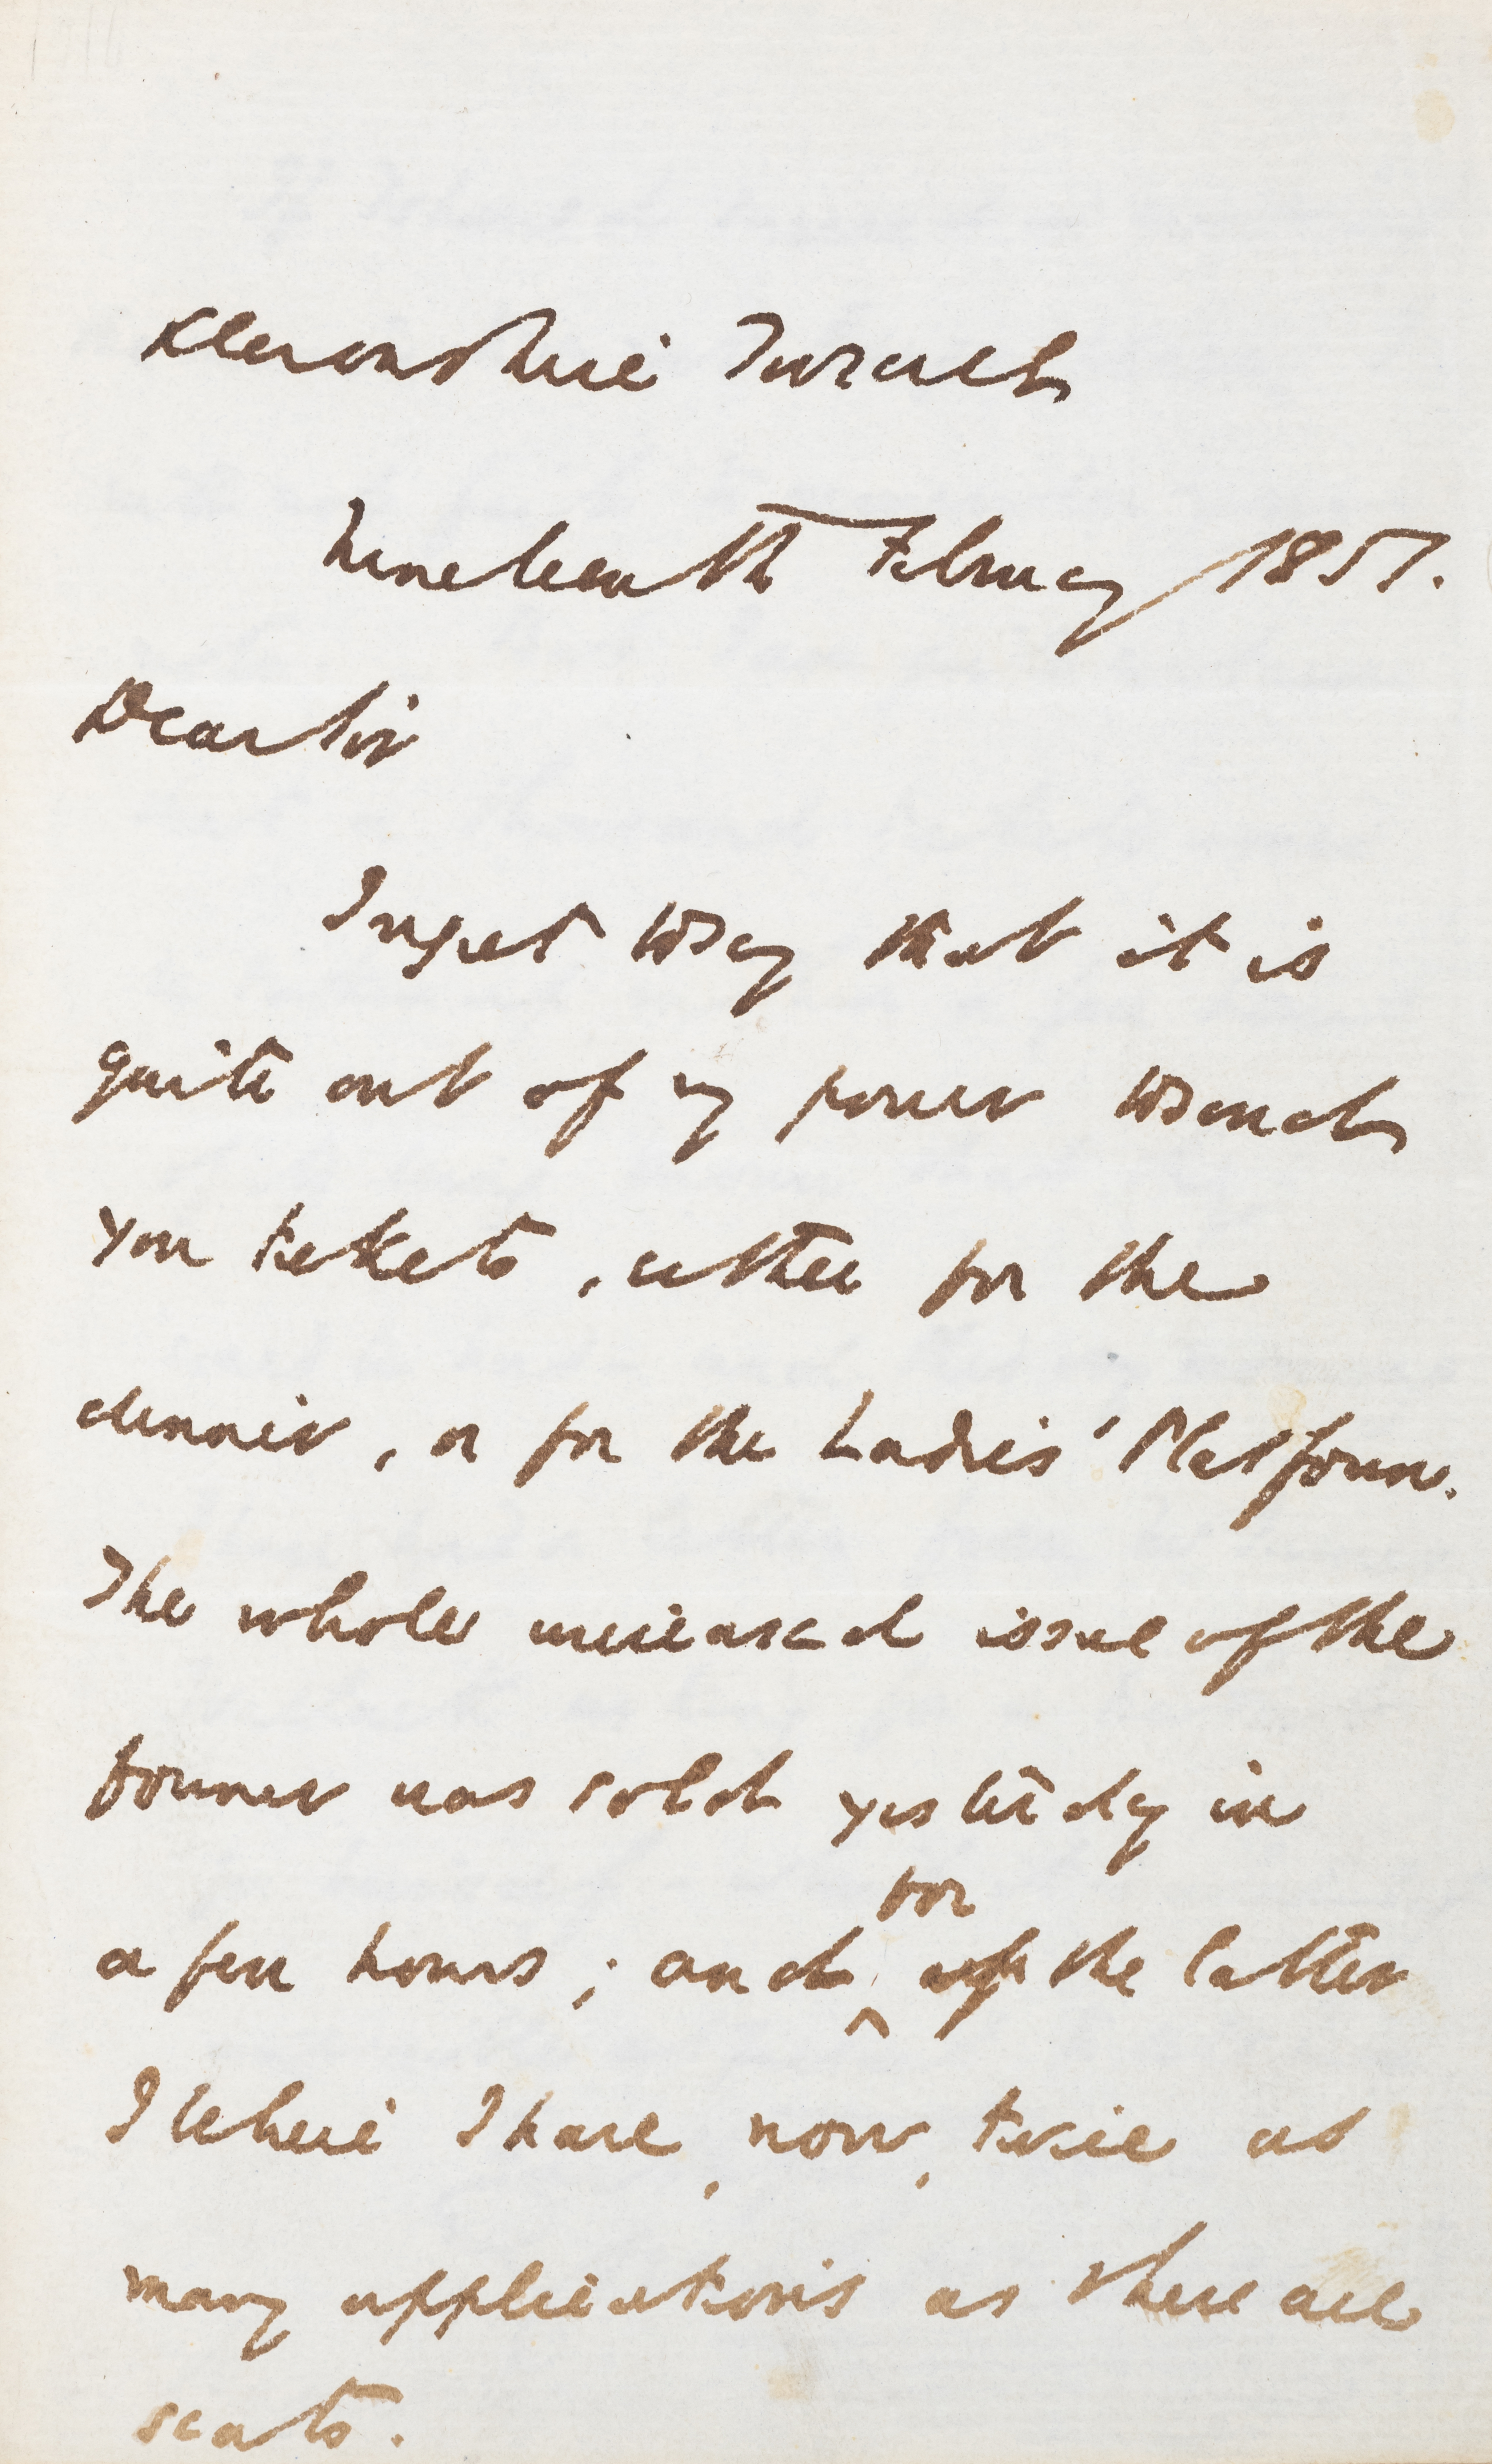 Devonshire Terrace
Nineteenth February 1851.
Dear Sir
I regret to say that it is
quite out of my power to send
you tickets, either for the
dinner, or for the Ladies' Platform.
The whole increased issue of the
former was sold yesterday in
for
a few hours; and of the latter
I believe I have, now, twice as
many applications as there are
seats.